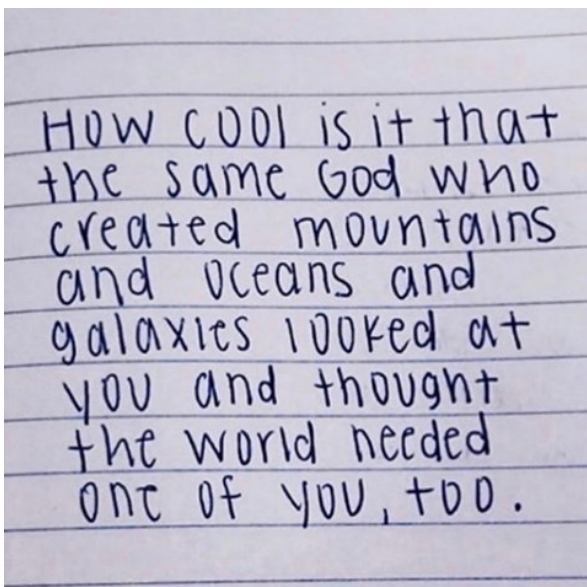 How cool is it that
the same God who
created mountains
and oceans and
galaxies looked at
you and thought
the world needed
one of you, too.